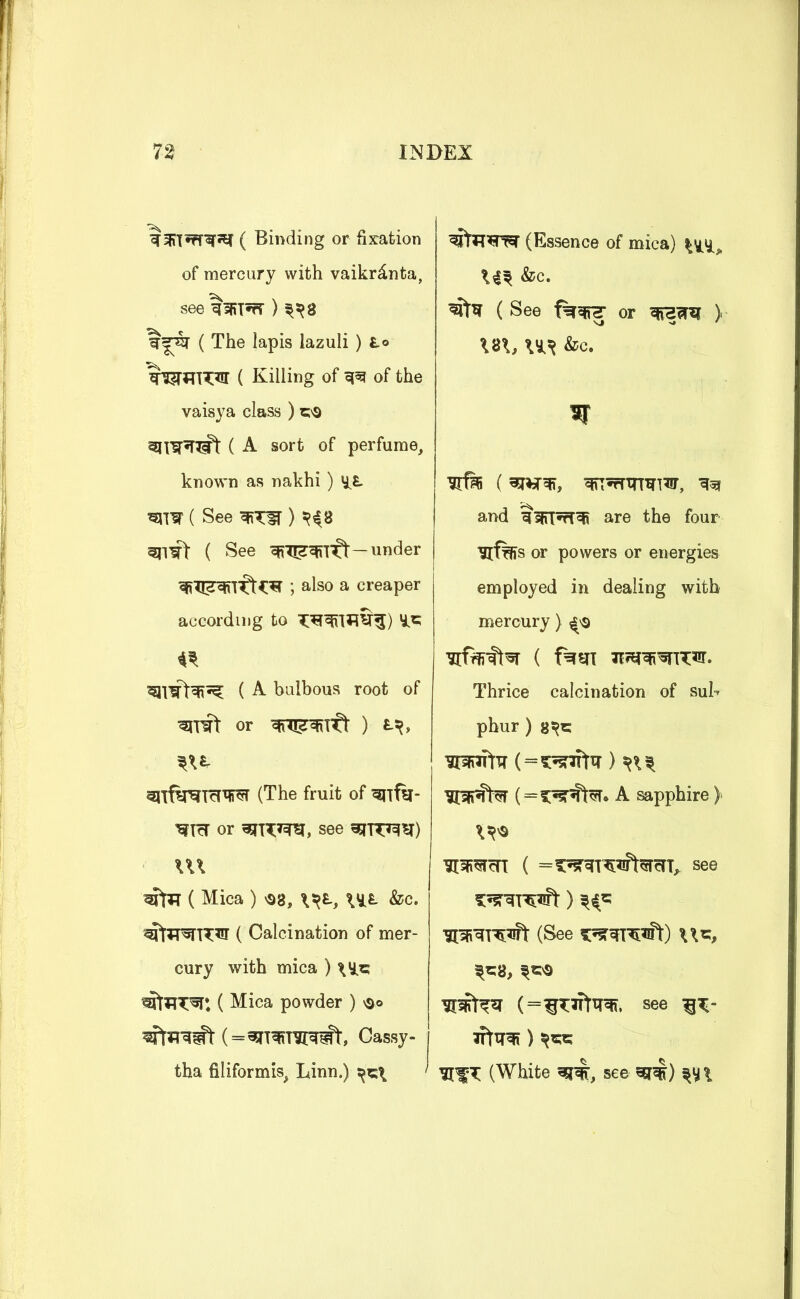 72 INDEX
वैक्रान्तबन्ध ( Binding or fixation
of mercury with vaikránta,
see वैक्रान्त ) ३२४
वैदूर्य ( The lapis lazuli ) ९०
वैश्यमारण ( Killing of वज्र of the
vaisya class ) ८७
( A sort of perfume,
known as nakhi ) ५९
व्याघ्र ( See करञ्ज ) २६४
व्याघ्री ( See कण्टकारी—under
; also a creaper
according to ) ५८
६३
व्याघ्रीकन्द ( A bulbous root of
व्याघ्री or कण्टकारी ) ९२,
३१९
(The fruit of
or आरग्वध, see आरग्वध)
१११
व्योम ( Mica ) ७४, १२९, १५९ &c.
व्योमजारण ( Calcination of mer-
cury with mica ) १५८
व्योमरजः ( Mica powder ) ७०
व्योमवल्ली (=आकाशवल्ली, Cassy-
tha filiformis, Linn.) २८१
व्योमसत्त्व (Essence of mica) १५५,
१६३ &c.
व्योष ( See त्रिकटु or कटुत्रय )
१४१, १५२ &c.
श
शक्ति ( अभ्रक, कान्तपाषाण, वज्र
and वैक्रान्तक are the four
शक्तिs or powers or energies
employed in dealing with
mercury ) ६७
( त्रिधा गन्धकजारण.
Thrice calcination of sul-
phur ) ४२८
शक्रगोप (=इन्द्रगोप ) २१३
शक्रनील (=इन्द्रनील. A sapphire )
१२७
शक्रलता ( =इन्द्रवारुणीलता, see
इन्द्रवारुणी ) ३६८
शक्रवारुणी (See इन्द्रवारुणी) ११८,
३८४, ३८७
see
) २८८
(White अर्क, see अर्क) ३५१